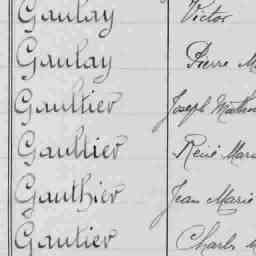 Gaulay Victor
Gaulay Pierre M
Gaultier Joseph Mathu
Gaultier René Mari
Gauthier Jean Marie
Gautier Charles M